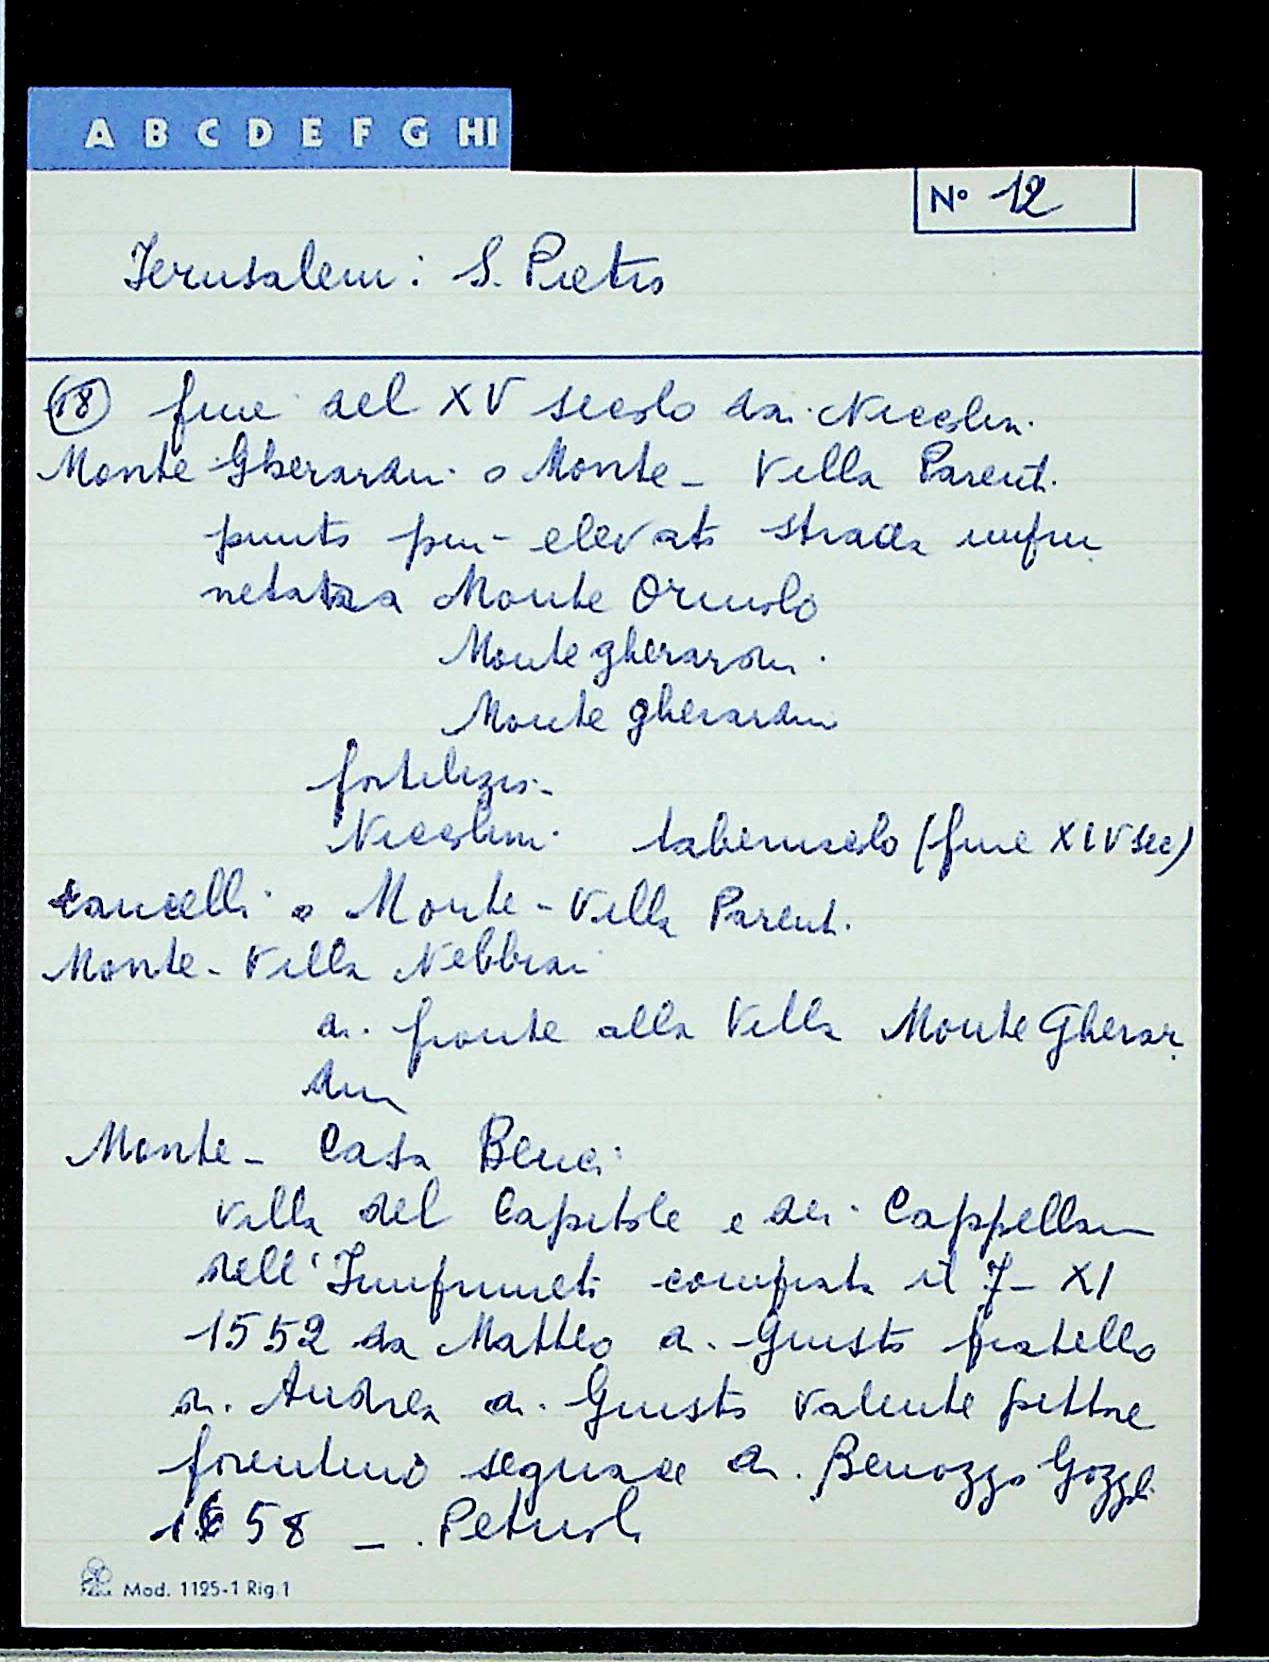 A B C D E F G HI
N° 12
Jerusalem: S. Pietro
(18) fine del XV secolo da Niccolini
Monte Gherardini o Monte - Villa Parenti
punto più elevato strada impru
netana Monte Oriuolo
Monte gherardini
Monte gherardini
fortilizio
Niccolini tabernacolo (fine XIV sec)
Cancelli o Monte - Villa Parenti
Monte - Villa Nebbiai
di fronte alla Villa Monte Gherar
dini
Monte - Casa Benci
Villa del Capitolo e dei Cappellani
dell'Impruneta comprata il 7 - XI
1552 da Matteo di Giusto fratello
di Andrea di Giusto valente pittore
fiorentino seguace di Benozzo Gozzoli
1658 - Petrioli
Mod. 1125-1 Rig.1